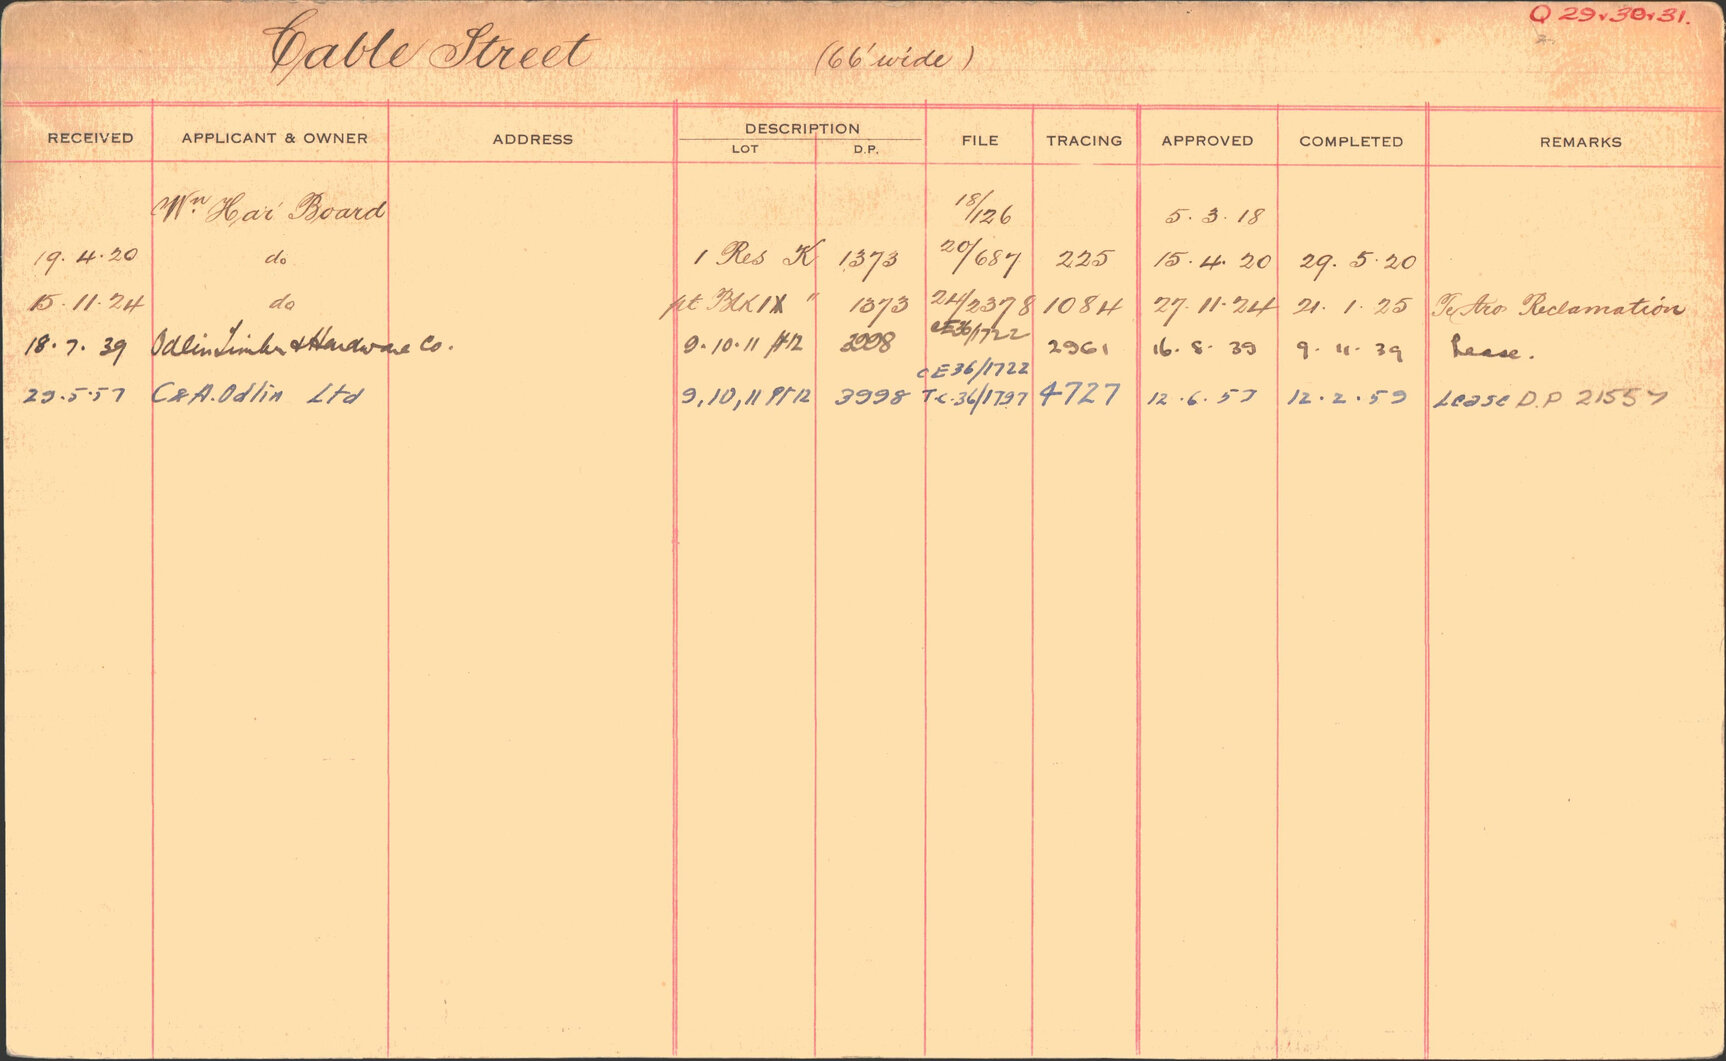 Q 29 30 31.
Cable Street (66' wide)
RECEIVED APPLICANT & OWNER ADDRESS DESCRIPTION LOT D.P. FILE TRACING APPROVED COMPLETED REMARKS
Wn Har Board 18/126 5.3.18
19.4.20 do 1 Res K 1373 20/687 225 15.4.20 29.5.20
15.11.24 do pt Blk IX " 1373 24/2378 1084 27.11.24 21.1.25 Te Aro Reclamation
18.7.39 Odlin Timber & Hardware Co. 9.10.11 pt 12 3998 CE36/1722 2961 16.8.39 9.11.39 Lease.
CE36/1722
29.5.57 C&A.Odlin Ltd 9,10,11 Pt 12 3998 T.C.36/1797 4727 12.6.57 12.2.59 Lease D.P 21557